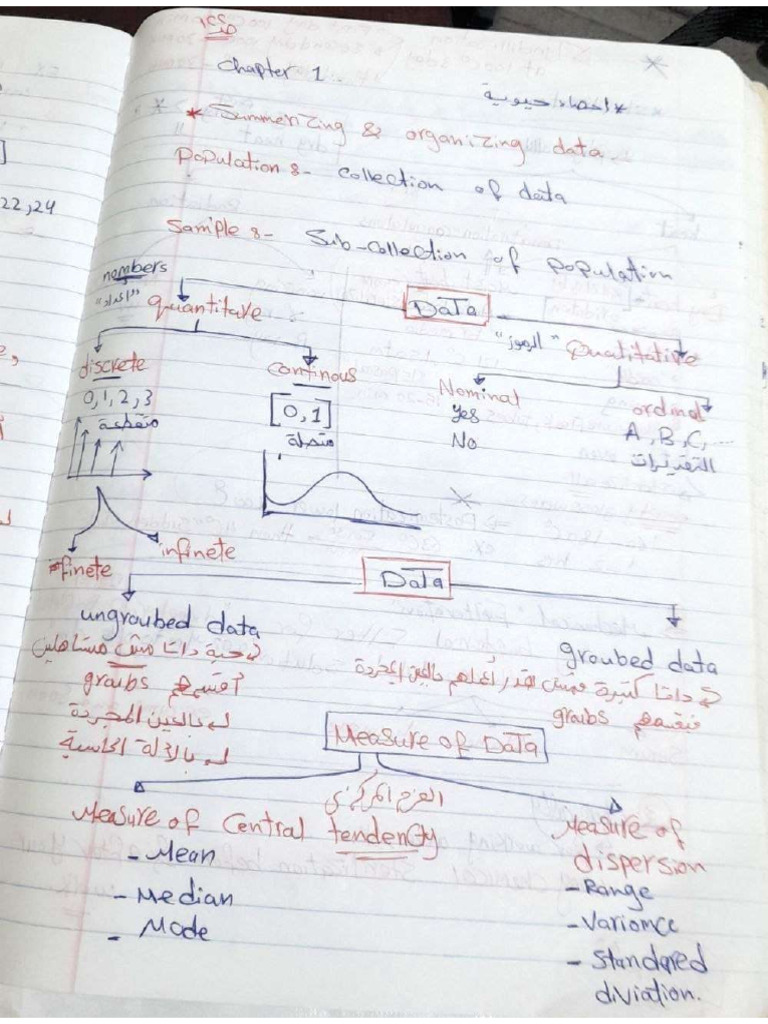 Chapter 1
* احصاء حيوية
* Summerizing & organizing data.
Population :- Collection of data
Sample :- Sub-collection of population
numbers
"اعداد"
Data
quantitave
"الرموز" Qualitative
discrete
continous
Nominal
ordinal
0, 1, 2, 3
[0, 1]
Yes
A, B, C, ...
متقطعة
متصلة
No
التقديرات
finete
infinete
Data
ungroubed data
groubed data
حبة داتا مش مستاهلين
أقسمهم graubs
بالعين المجردة
بالالة الحاسبة
داتا كبيرة مش اقدر أعملهم بالعين المجردة
فنقسمهم graubs
Measure of Data
النزع المركزي
Measure of Central tendency
- Mean
- Median
- Mode
Measure of
dispersion
- Range
- Variomce
- Standered
diviation.